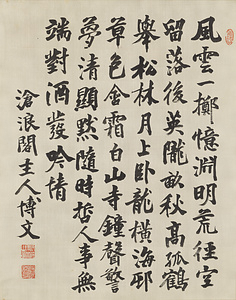 風雲一擲憶淵明荒徑空
留落後英隴畝秋高孤鶴
舉松林月上臥龍橫海邨
草色金霜白山寺鐘聲警
夢清顯默隨時哲人事無
端對酒發吟情
滄浪閣主人博文